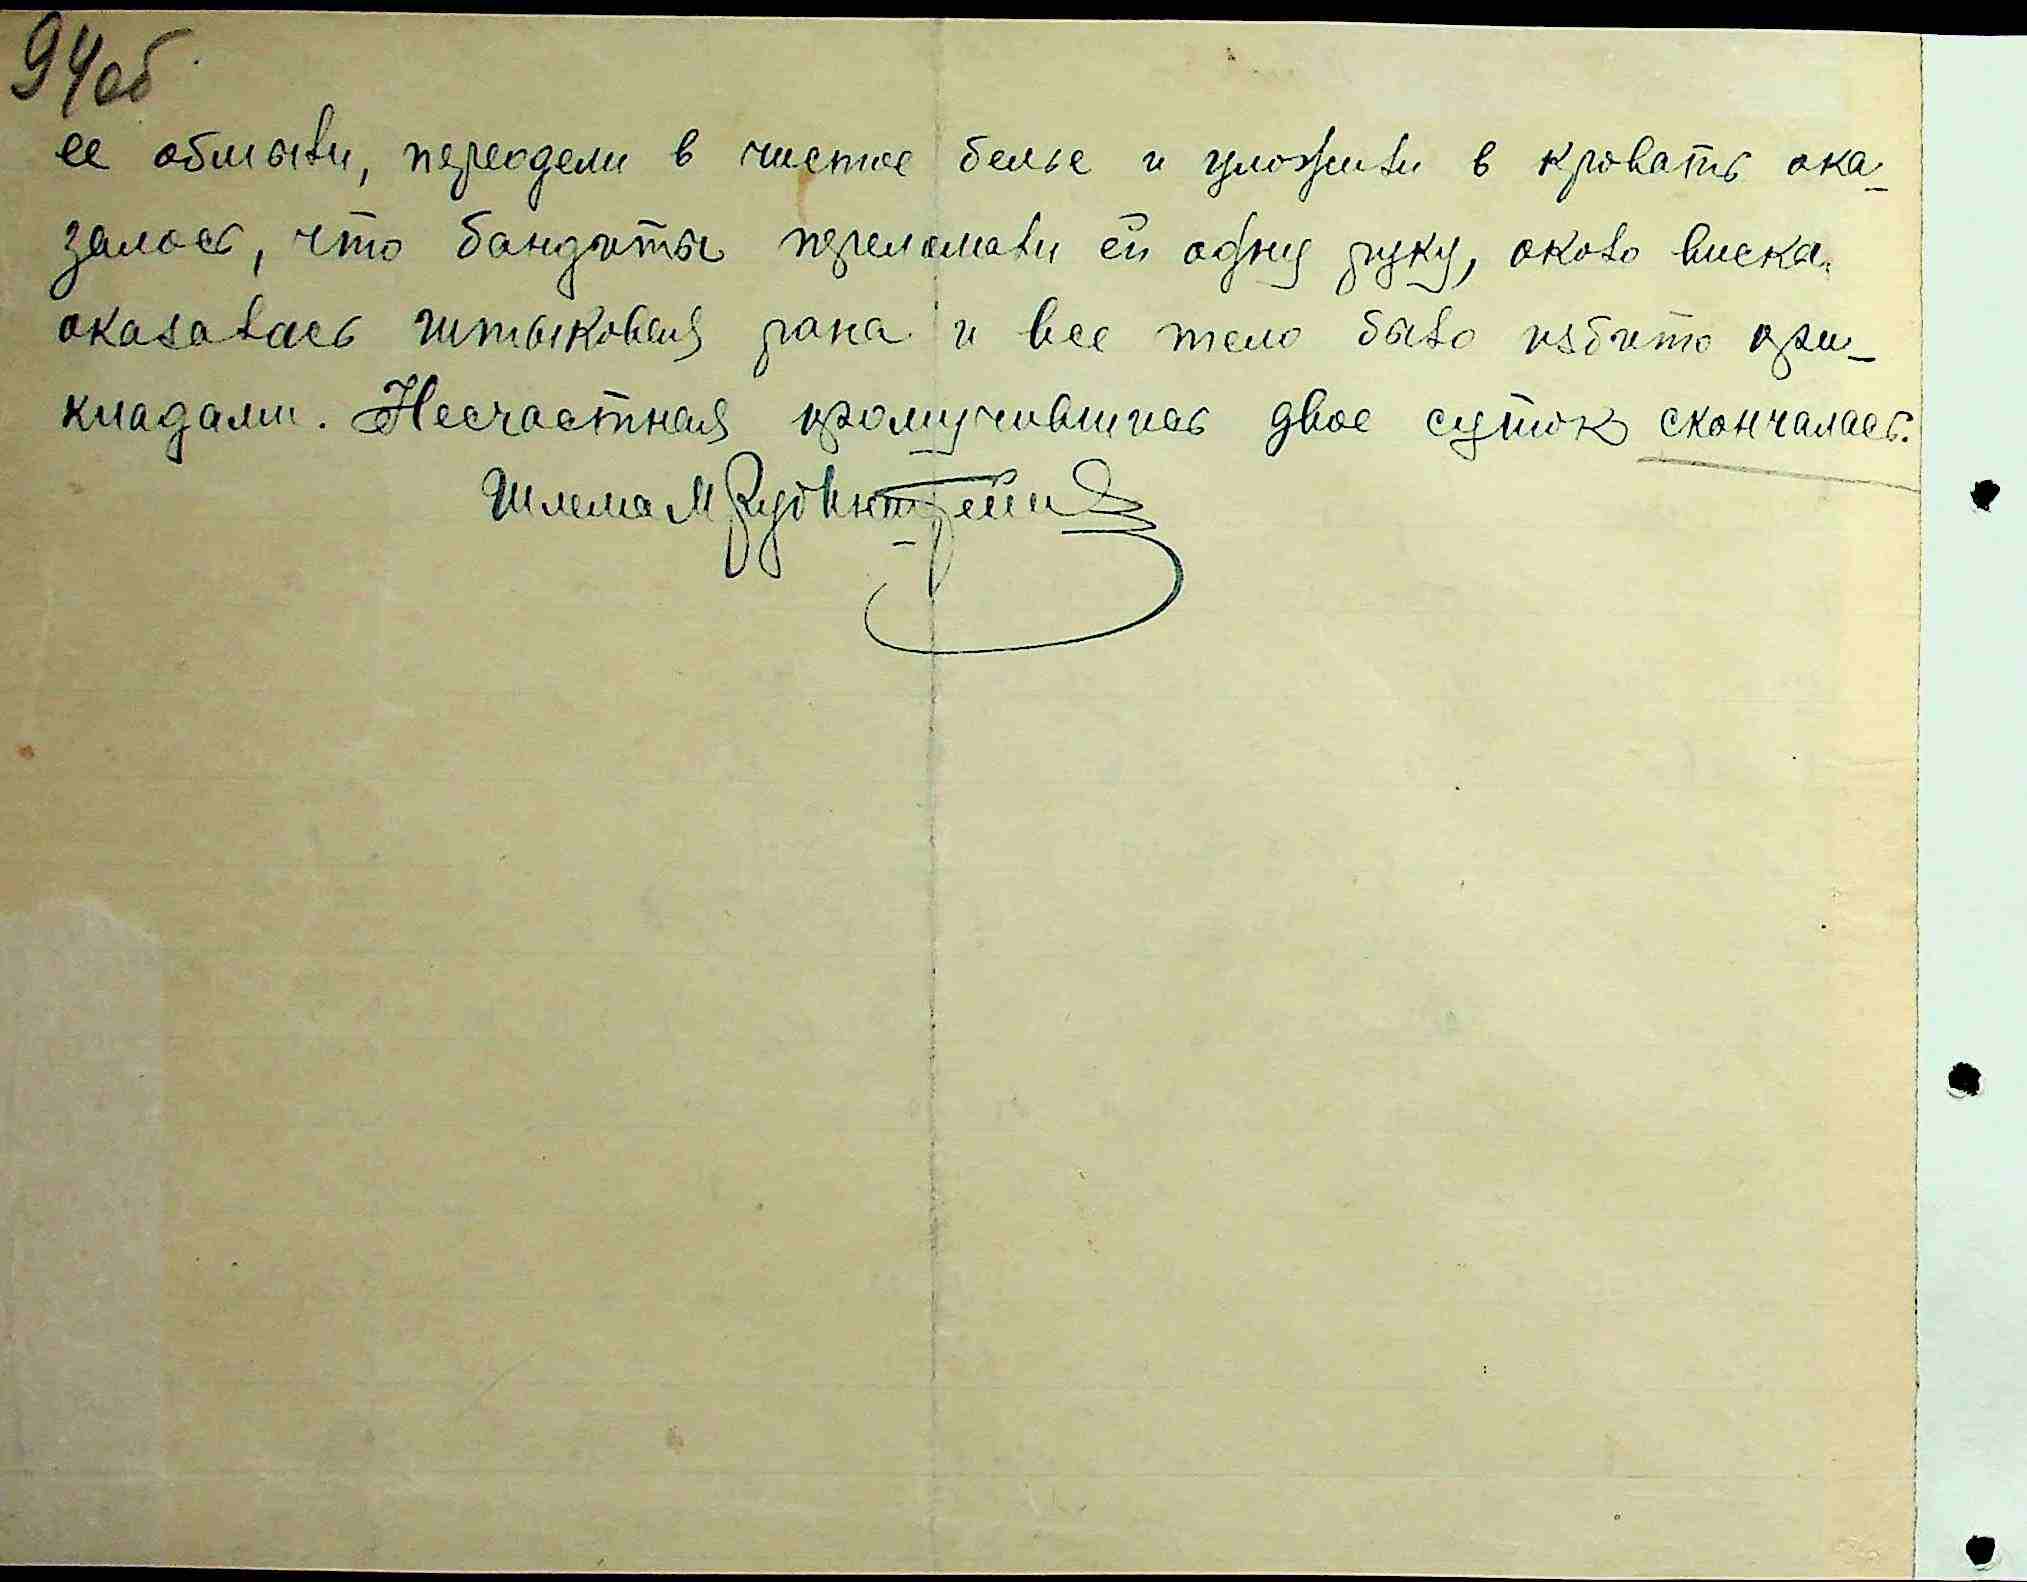 94об
ее обмыли, переодели в чистое белье и уложили в кровать ока-
залось, что бандиты переломали ей одну руку, около виска
оказалась штыковая рана и все тело было избито при-
кладами. Несчастная промучившись двое суток скончалась.
Шлема М